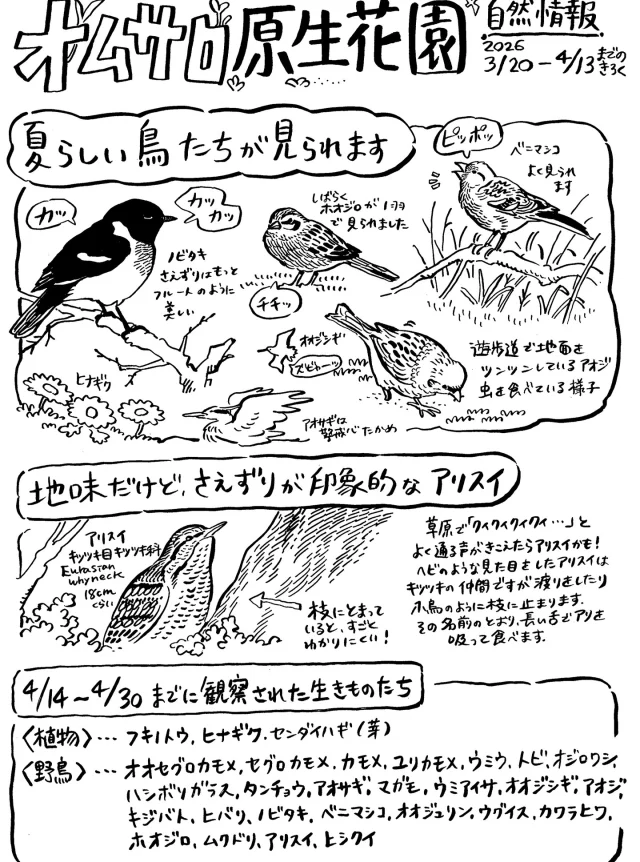 オムサロ原生花園
自然情報
2026
3/20-4/13までのきろく
夏らしい鳥たちが見られます
ピッポッ
ベニマシコ
よく見られ
ます
カッ
カッ
カッ
しばらく
ホオジロが1羽
で見られました
ノビタキ
さえずりはもっと
フルートのように
美しい
チチッ
オオジシギ
ズビャーッ
遊歩道で地面を
ツンツンしているアオジ
虫を食べている様子
ヒナギク
アオサギは
警戒心たかめ
地味だけど、さえずりが印象的なアリスイ
アリスイ
キツツキ目キツツキ科
Eurasian
wryneck
18cm
くらい
枝にとまって
いると、すごく
わかりにくい!
草原で「クィクィクィクィ…」と
よく通る声がきこえたらアリスイかも!
ヘビのような見た目をしたアリスイは
キツツキの仲間ですが渡りをしたり
小鳥のように枝に止まります。
その名前のとおり、長い舌でアリを
吸って食べます。
4/14~4/30までに観察された生きものたち
〈植物〉…フキノトウ、ヒナギク、センダイハギ(芽)
〈野鳥〉…オオセグロカモメ、セグロカモメ、カモメ、ユリカモメ、ウミウ、トビ、オジロワシ、
ハシボソガラス、タンチョウ、アオサギ、マガモ、ウミアイサ、オオジシギ、アオジ、
キジバト、ヒバリ、ノビタキ、ベニマシコ、オオジュリン、ウグイス、カワラヒワ、
ホオジロ、ムクドリ、アリスイ、ヒシクイ